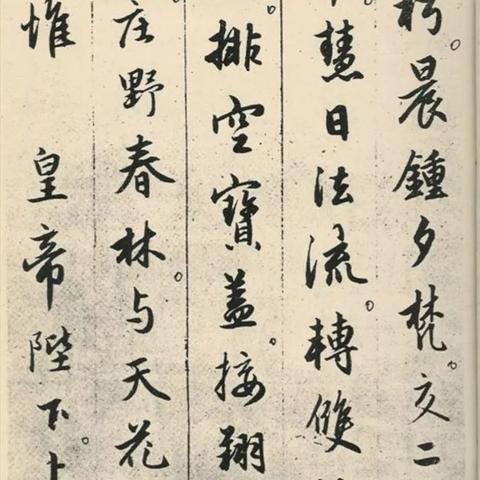 朽。晨鍾夕梵。交二
慧日法流。轉雙
排空寶盖。接翔
庄野春林。与天花
惟　皇帝陛下。上